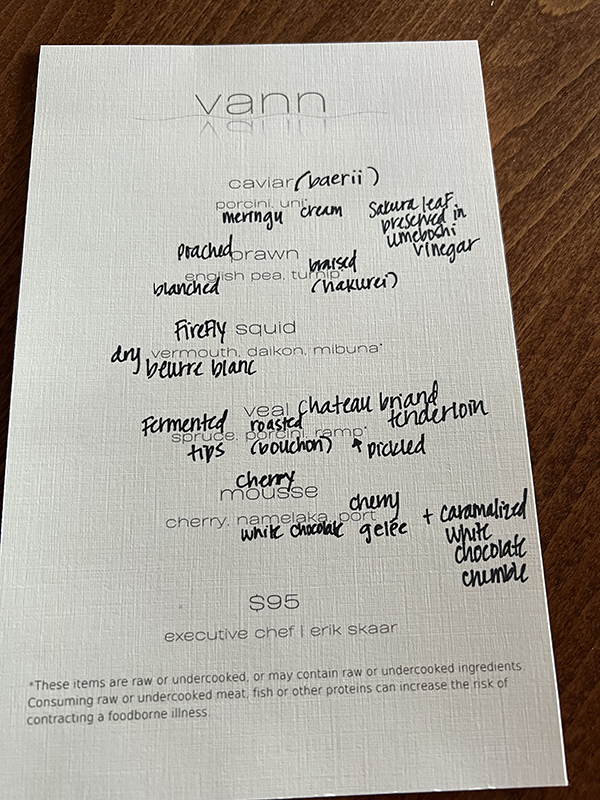 vann
caviar (baerii)
porcini, uni*
meringu cream
Sakura leaf
preserved in
umeboshi
vinegar
poached prawn
english pea, turnip
braised
blanched (hakurei)
Firefly squid
dry vermouth, daikon, mibuna*
beurre blanc
veal chateau briand
tenderloin
Fermented roasted
spruce, porcini, ramp*
tips (bouchon) pickled
cherry
mousse
cherry
cherry, namelaka, port
white chocolate gelée
+ caramalized
white
chocolate
crumble
$95
executive chef | erik skaar
*These items are raw or undercooked, or may contain raw or undercooked ingredients.
Consuming raw or undercooked meat, fish or other proteins can increase the risk of
contracting a foodborne illness.